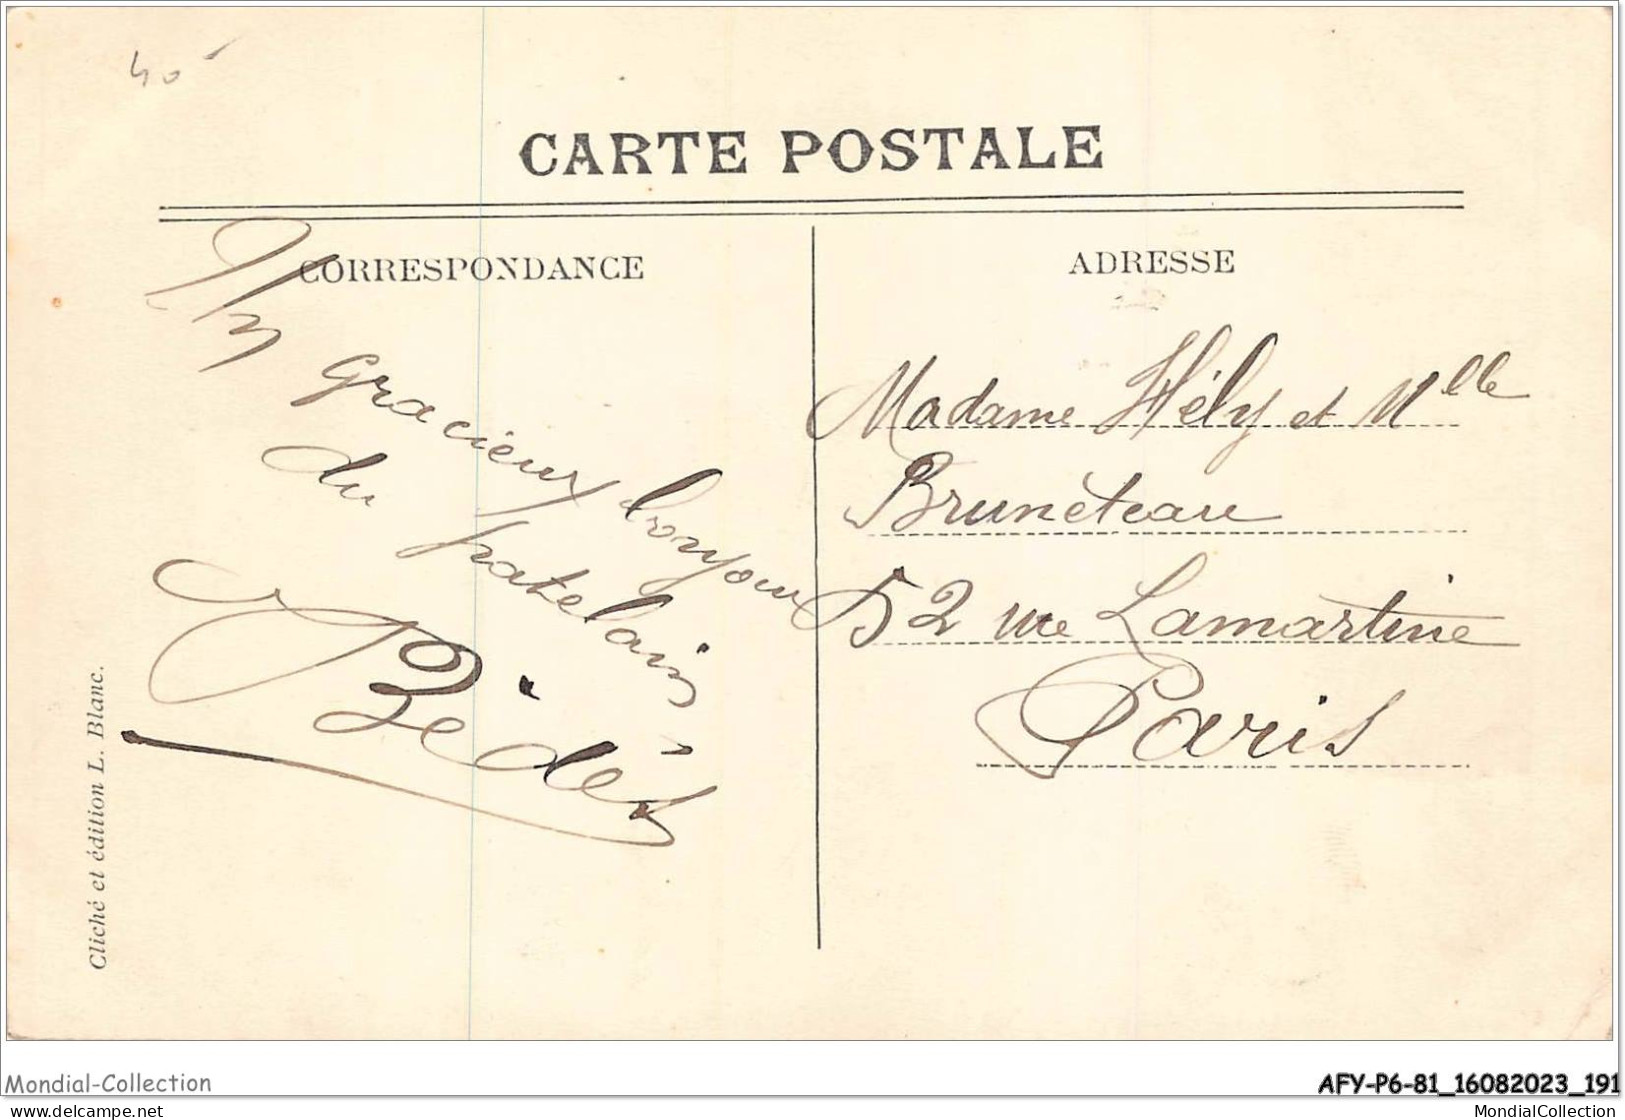 40
CARTE POSTALE
CORRESPONDANCE
Un gracieux bonjour
du patelain
Bèdès
ADRESSE
Madame Hély et Mlle
Brunéteau
52 rue Lamartine
Paris
Cliché et édition L. Blanc.
Mondial-Collection
AFY-P6-81_16082023_191
delcampe.net
MondialCollection